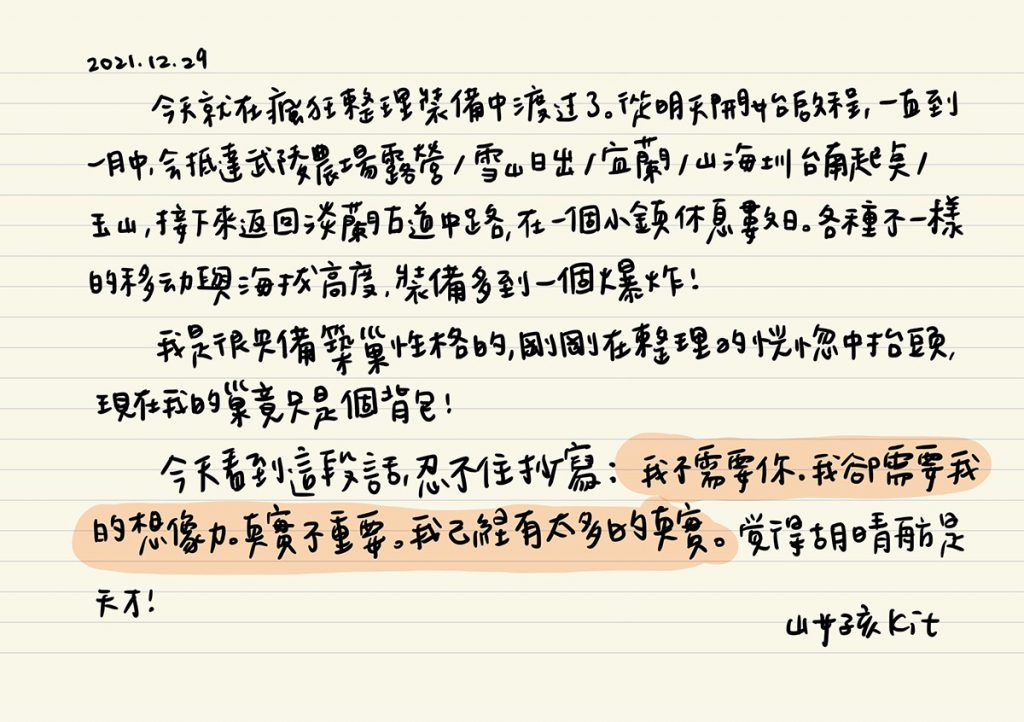 2021.12.29
今天就在瘋狂整理裝備中渡过了。從明天開始啟程,一直到
一月中,会抵達武陵農場露營/雪山日出/宜蘭/山海圳台南起点/
玉山,接下來返回淡蘭古道中路,在一個小鎮休息數日。各種不一樣
的移动與海拔高度,裝備多到一個爆炸!
我是很具備築巢性格的,剛剛在整理的恍惚中抬頭,
現在我的巢竟只是個背包!
今天看到這段話,忍不住抄寫:我不需要你。我卻需要我
的想像力。真實不重要。我已經有太多的真實。覚得胡晴舫是
天才!
山女孩Kit